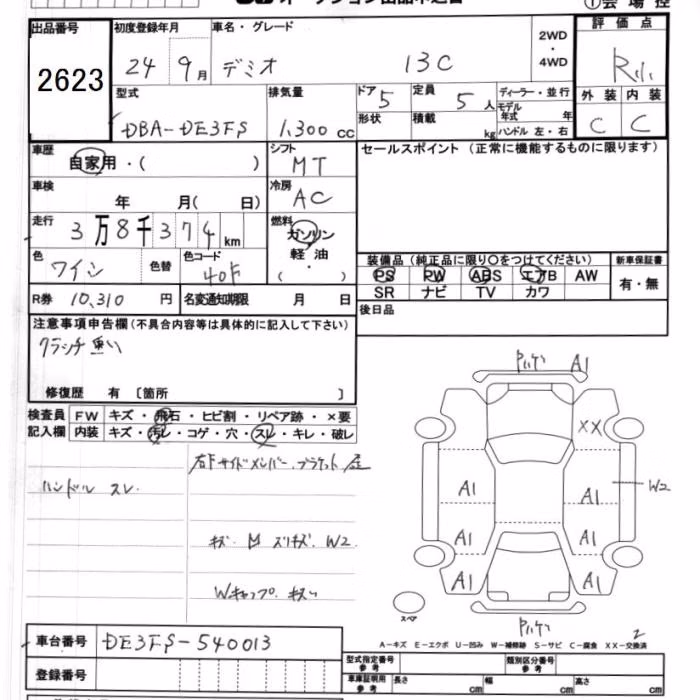 出品番号
2623
初度登録年月
24 9月
車名・グレード
デミオ 13C
2WD
・
4WD
評価点
R
外装 内装
C C
型式
DBA-DE3FS
排気量
1,300 cc
ドア 5
定員 5人
形状
積載 kg
ディーラー・並行
モデル年式 年
ハンドル 左・右
車歴
自家用・( )
シフト
MT
セールスポイント (正常に機能するものに限ります)
車検
年 月( 日)
冷房
AC
走行
3万8千374km
燃料
ガソリン
軽・油
( )
色
ワイン
色替
色コード
40F
装備品(純正品に限り○をつけてください)
PS PW ABS エアB AW
SR ナビ TV カワ
新車保証書
有・無
R券 10,310 円
名変通知期限 月 日
後日品
注意事項申告欄(不具合内容等は具体的に記入して下さい)
クラッチ重い
修復歴 有 〔箇所 〕
検査員
記入欄
FW キズ・飛石・ヒビ割・リペア跡・×要
内装 キズ・汚レ・コゲ・穴・スレ・キレ・破レ
右F サイドメンバー、ブラケット
ハンドル スレ
キズ、M スリキズ、W2
Wキャップ
A1
XX
A1 A1 W2
A1 A1
A1 A1
スペア
2
A－キズ E－エクボ U－凹み W－補修跡 S－サビ C－腐食 XX－交換済
車台番号 DE3FS-540013
登録番号
型式指定番号
参考
類別区分番号
参考
車庫証明用
参考
長さ cm
幅 cm
高さ cm